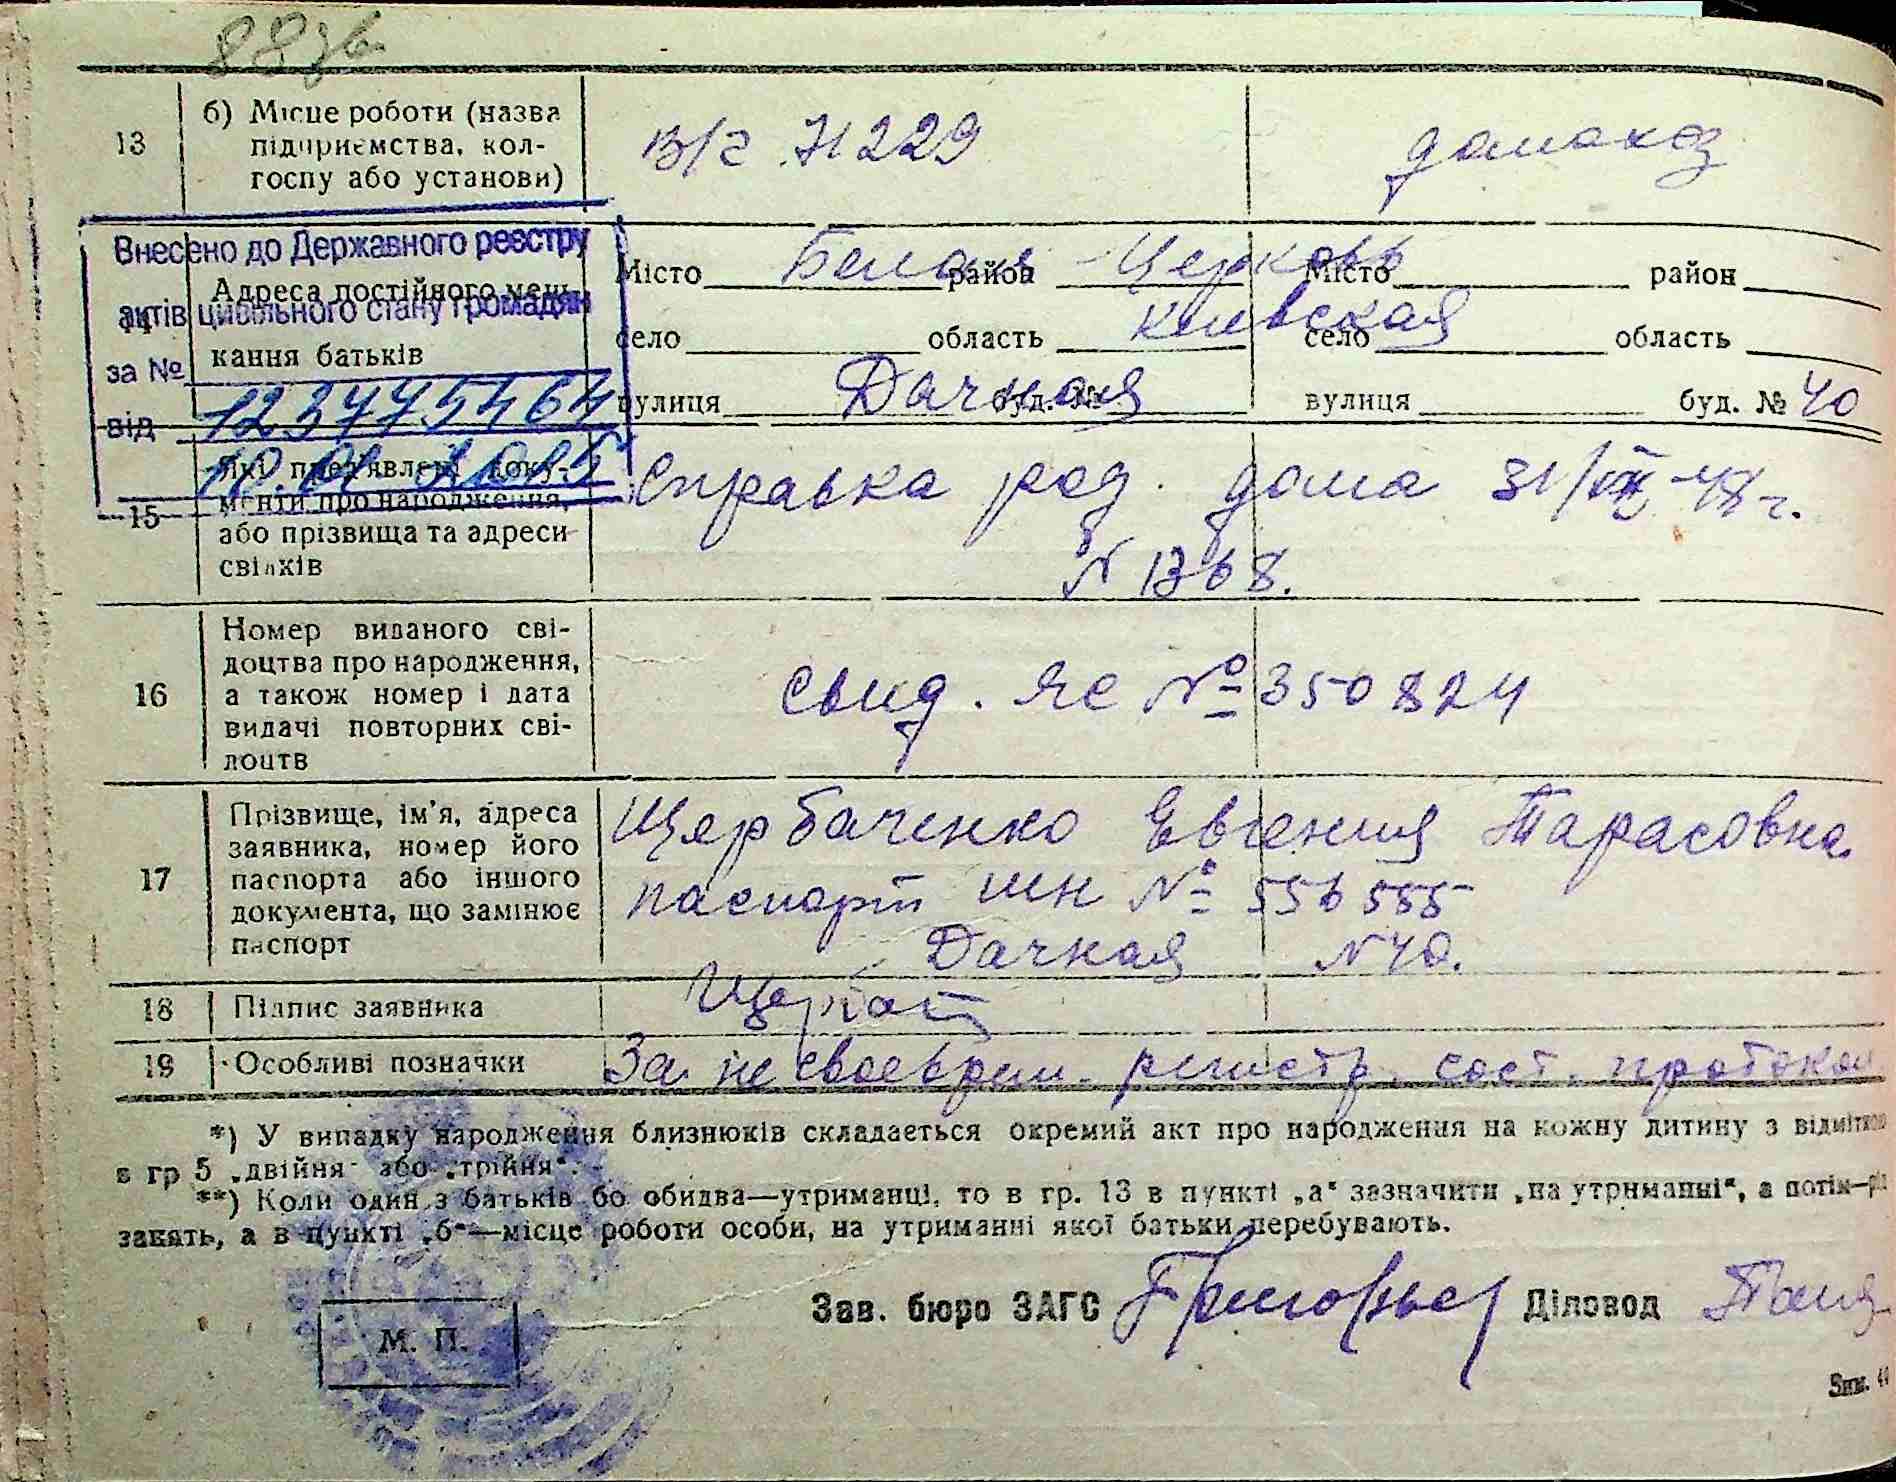 88 зв.
13 б) Місце роботи (назва підприємства, колгоспу або установи) в/г N 229 домахоз
Внесено до Державного реєстру
актів цивільного стану громадян
за № 123775464
від
14 Адреса постійного меш-
кання батьків
Місто Белая район Церковь Місто район
село область Киевская село область
вулиця Дачная буд. № вулиця буд. № 40
15 Які пред'явлені доку-
менти про народження,
або прізвища та адреси
свідків
Справка род. дома 31/VII-48 г.
N 1368.
16 Номер виданого сві-
доцтва про народження,
а також номер і дата
видачі повторних сві-
доцтв
свид. ЯС № 350824
17 Прізвище, ім'я, адреса
заявника, номер його
паспорта або іншого
документа, що замінює
паспорт
Щербаченко Евгения Тарасовна
паспорт № 556555
Дачная N 40.
18 Підпис заявника
19 Особливі позначки За не своеврем. регистр. сост. протокол
*) У випадку народження близнюків складається окремий акт про народження на кожну дитину з відміткою
в гр 5 „двійня“ або „трійня“.
**) Коли один з батьків бо обидва—утриманці, то в гр. 13 в пункті „а“ зазначити „на утриманні“, а потім—рід
занять, а в пункті „б“—місце роботи особи, на утриманні якої батьки перебувають.
Зав. бюро ЗАГС Діловод
М. П.
Зам.